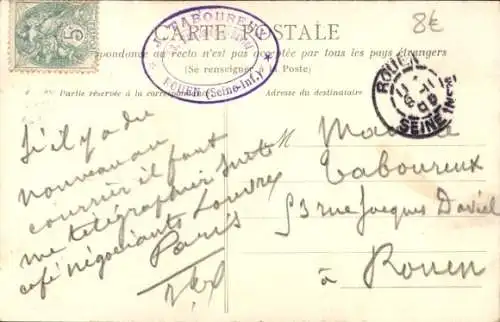 8€
CARTE POSTALE
TABOUREUX
ROUEN (Seine-Inf.)
La Correspondance au recto n'est pas acceptée par tous les pays étrangers
(Se renseigner à la Poste)
Partie réservée à la correspondance
Adresse du destinataire
5
ROUEN
SEINE INFRE
S'il y a du
nouveau au
courrier il faut
me télégraphier suite
café négociants Louvre
Paris
Madame
Taboureux
53 rue Jacques Daviel
à Rouen